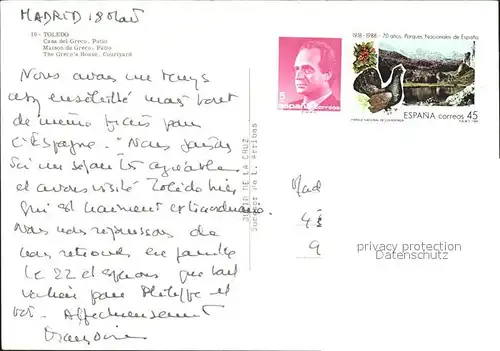 MADRID 18 Août
10 - TOLEDO
Casa del Greco, Patio
Maison du Greco, Patio
The Greco's House, Courtyard
Nous avons un temps
assy ensoleillé mais tout
de même frais pour
l'Espagne. Nous
ici un séjour agréable
et avons visité Tolède hier
qui est vraiment extraordinaire.
Nous nous réjouissons de
vous retrouver en famille
le 22 et espérons que tout
va bien pour Philippe et
toi. Affectueusement
Françoise
JULIO DE LA CRUZ
Sucesor de L. Arribas
5
ESPAÑA correos
1918-1988 - 70 años, Parques Nacionales de España
PARQUE NACIONAL DE COVADONGA
ESPAÑA correos 45
Mad
9
privacy protection
VERIFIED